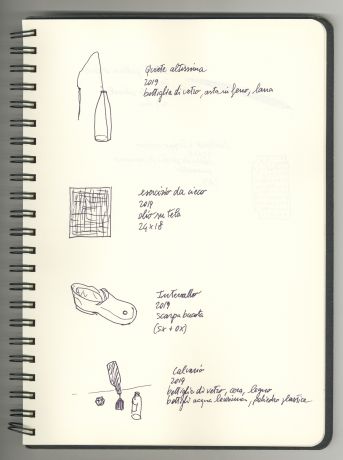 Quote altissima
2019
bottiglia di vetro, asta in ferro, lana
esercizio da cieco
2019
olio su tela
24x18
Intervallo
2019
scarpa bucata
(sx + dx)
Calvario
2019
bottiglia di vetro, cera, legno
bottiglia acqua leverissima, poliedro plastica